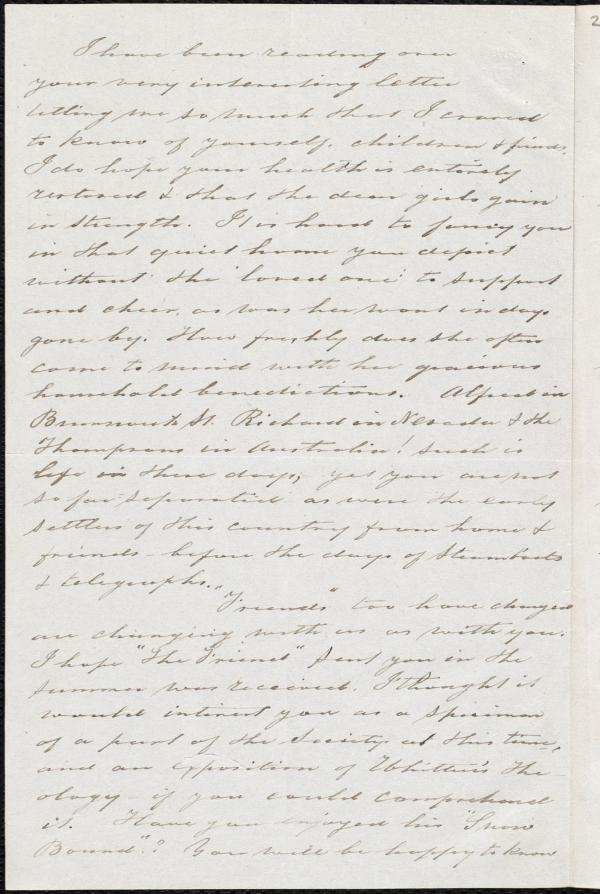 2
I have been reading over
your very interesting letter
telling me so much that I craved
to know of yourself, children & friends.
I do hope your health is entirely
restored & that the dear girls gain
in strength. It is hard to fancy you
in that quiet home you depict
without the 'loved one' to support
and cheer, as was her wont in days
gone by. How freshly does she often
come to mind with her gracious
household benedictions. Alfred in
Brunswick St. Richard in Nevada & the
Thompsons in Australia! Such is
life in these days; yet you are not
so far separated as were the early
settlers of this country from home &
friends - before the days of Steamboats
& telegraphs.
"Friends" too have changed
are changing with us as with you.
I hope "The Friend" sent you in the
summer was received. I thought it
would interest you as a specimen
of a part of the Society at this time,
and an exposition of Whittier's The-
ology - if you could comprehend
it. Have you enjoyed his "Snow
Bound"? You will be happy to know